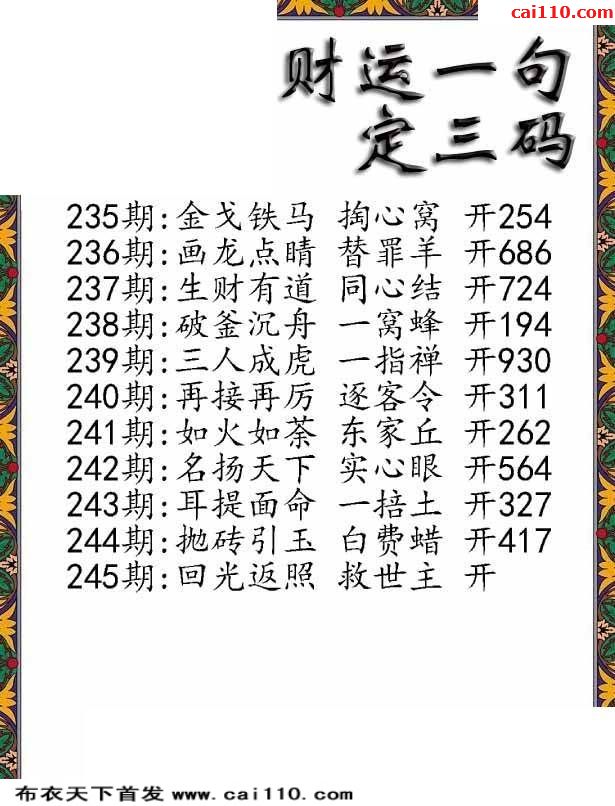 cai110.com
财运一句
定三码
235期:金戈铁马 掏心窝 开254
236期:画龙点睛 替罪羊 开686
237期:生财有道 同心结 开724
238期:破釜沉舟 一窝蜂 开194
239期:三人成虎 一指禅 开930
240期:再接再厉 逐客令 开311
241期:如火如荼 东家丘 开262
242期:名扬天下 实心眼 开564
243期:耳提面命 一掊土 开327
244期:抛砖引玉 白费蜡 开417
245期:回光返照 救世主 开
布衣天下首发 www.cai110.com